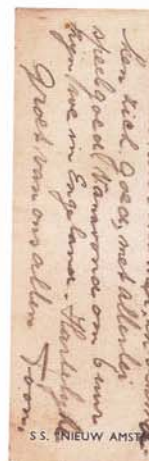 hen zich goed, met allerlei
speelgoed. Vanavond om 6 uur
zijn we in Engeland. Hartelijke
groet van ons allen
Toom.
S.S. NIEUW AMST